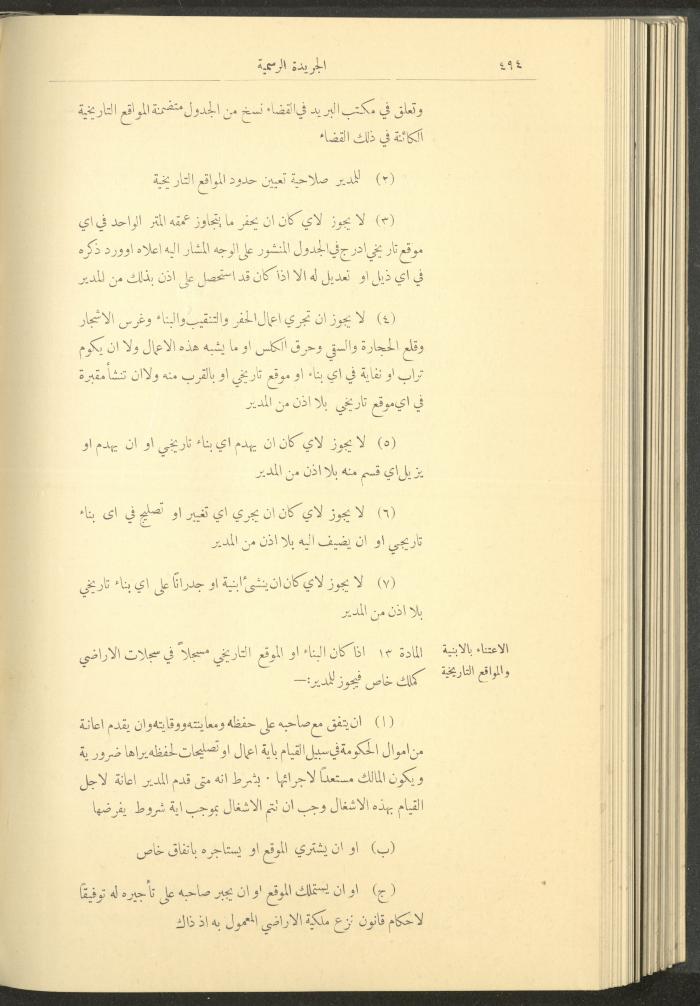 ٤٩٤
الجريدة الرسمية
وتعلق في مكتب البريد في القضاء نسخ من الجدول متضمنة المواقع التاريخية
الكائنة في ذلك القضاء
(٢) للمدير صلاحية تعيين حدود المواقع التاريخية
(٣) لا يجوز لاي كان ان يحفر ما يتجاوز عمقه المتر الواحد في اي
موقع تاريخي ادرج في الجدول المنشور على الوجه المشار اليه اعلاه او ورد ذكره
في اي ذيل او تعديل له الا اذا كان قد استحصل على اذن بذلك من المدير
(٤) لا يجوز ان تجري اعمال الحفر والتنقيب والبناء وغرس الاشجار
وقلع الحجارة والسقي وحرق الكلس او ما يشبه هذه الاعمال ولا ان يكوم
تراب او نفاية في اي بناء او موقع تاريخي او بالقرب منه ولا ان تنشأ مقبرة
في اي موقع تاريخي بلا اذن من المدير
(٥) لا يجوز لاي كان ان يهدم اي بناء تاريخي او ان يهدم او
يزيل اي قسم منه بلا اذن من المدير
(٦) لا يجوز لاي كان ان يجري اي تغيير او تصليح في اى بناء
تاريخي او ان يضيف اليه بلا اذن من المدير
(٧) لا يجوز لاي كان ان ينشئ ابنية او جدراناً على اي بناء تاريخي
بلا اذن من المدير
الاعتناء بالابنية
والمواقع التاريخية
المادة ١٣ اذا كان البناء او الموقع التاريخي مسجلاً في سجلات الاراضي
كملك خاص فيجوز للمدير:—
(ا) ان يتفق مع صاحبه على حفظه ومعاينته ووقايته وان يقدم اعانة
من اموال الحكومة في سبيل القيام باية اعمال او تصليحات لحفظه يراها ضرورية
ويكون المالك مستعداً لاجرائها . بشرط انه متى قدم المدير اعانة لاجل
القيام بهذه الاشغال وجب ان تتم الاشغال بموجب اية شروط يفرضها
(ب) او ان يشتري الموقع او يستاجره باتفاق خاص
(ج) او ان يستملك الموقع او ان يجبر صاحبه على تأجيره له توفيقاً
لاحكام قانون نزع ملكية الاراضي المعمول به اذ ذاك